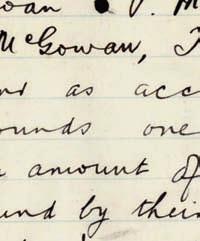 McGowan,
and as acc
ounds one
amount of
und by their